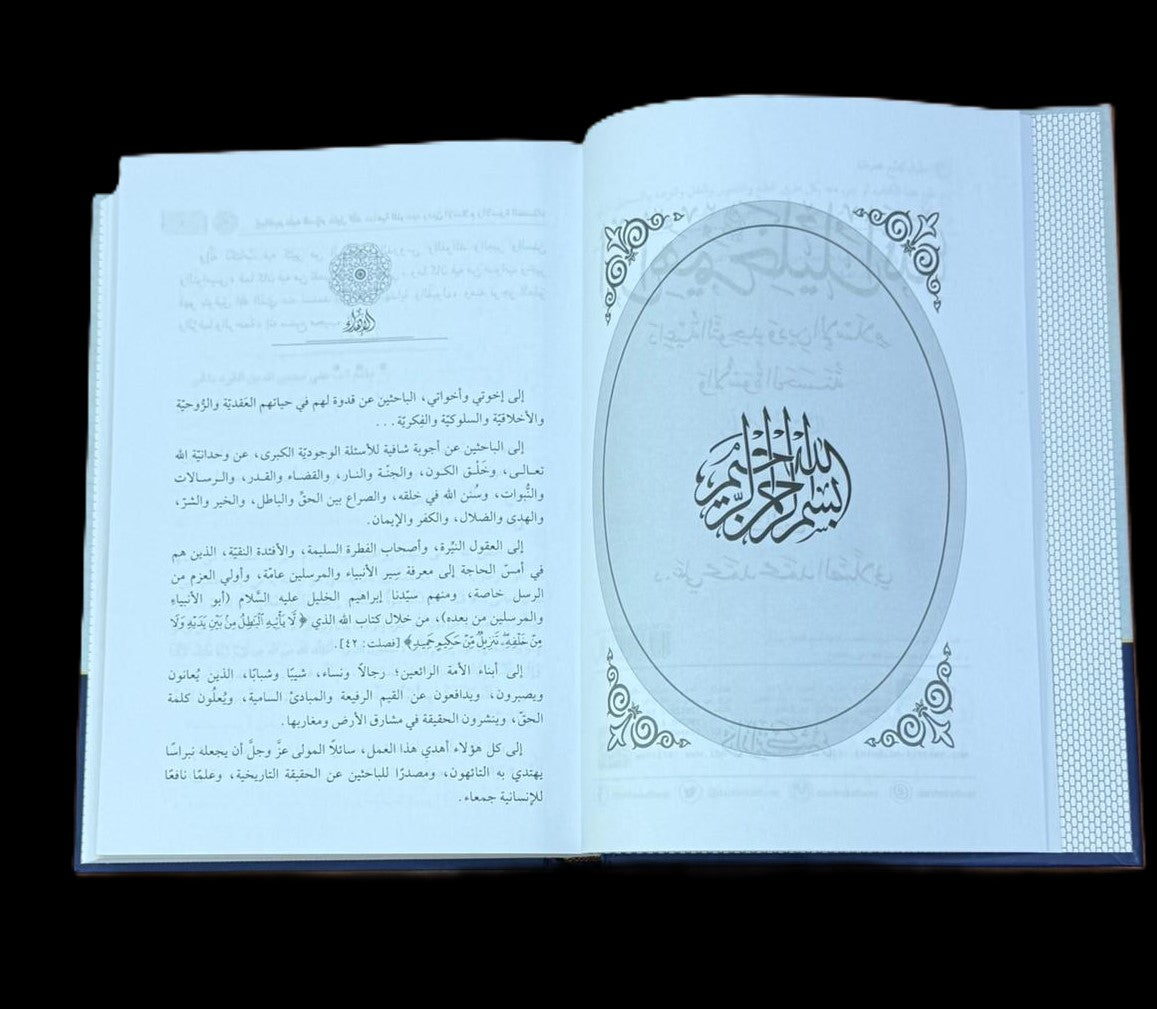 بسم الله الرحمن الرحيم
الإهداء
إلى إخوتي وأخواتي، الباحثين عن قدوة لهم في حياتهم العَقديّة والرُّوحيّة
والأخلاقيّة والسلوكيّة والفِكريّة...
إلى الباحثين عن أجوبة شافية للأسئلة الوجوديّة الكبرى، عن وحدانيّة الله
تعـالـى، وخَلْـق الكـون، والجنّـة والنـار، والقضـاء والقـدر، والـرسـالات
والنُّبوات، وسُنن الله في خلقه، والصراع بين الحقِّ والباطل، والخير والشرّ،
والهدى والضلال، والكفر والإيمان.
إلى العقول النيِّرة، وأصحاب الفطرة السليمة، والأفئدة النقيّة، الذين هم
في أمسّ الحاجة إلى معرفة سِير الأنبياء والمرسلين عامّة، وأولي العزم من
الرسل خاصة، ومنهم سيّدنا إبراهيم الخليل عليه السَّلام (أبو الأنبياء
والمرسلين من بعده)، من خلال كتاب الله الذي ﴿لَّا يَأْتِيهِ ٱلْبَٰطِلُ مِنۢ بَيْنِ يَدَيْهِ وَلَا
مِنْ خَلْفِهِۦۖ تَنزِيلٌ مِّنْ حَكِيمٍ حَمِيدٍ﴾ [فصلت: ٤٢].
إلى أبناء الأمة الرائعين؛ رجالاً ونساء، شيبًا وشبابًا، الذين يُعانون
ويصبرون، ويدافعون عن القيم الرفيعة والمبادئ السامية، ويُعلُون كلمة
الحقّ، وينشرون الحقيقة في مشارق الأرض ومغاربها.
إلى كل هؤلاء أهدي هذا العمل، سائلًا المولى عزَّ وجلَّ أن يجعله نبراسًا
يهتدي به التائهون، ومصدرًا للباحثين عن الحقيقة التاريخية، وعلمًا نافعًا
للإنسانية جمعاء.